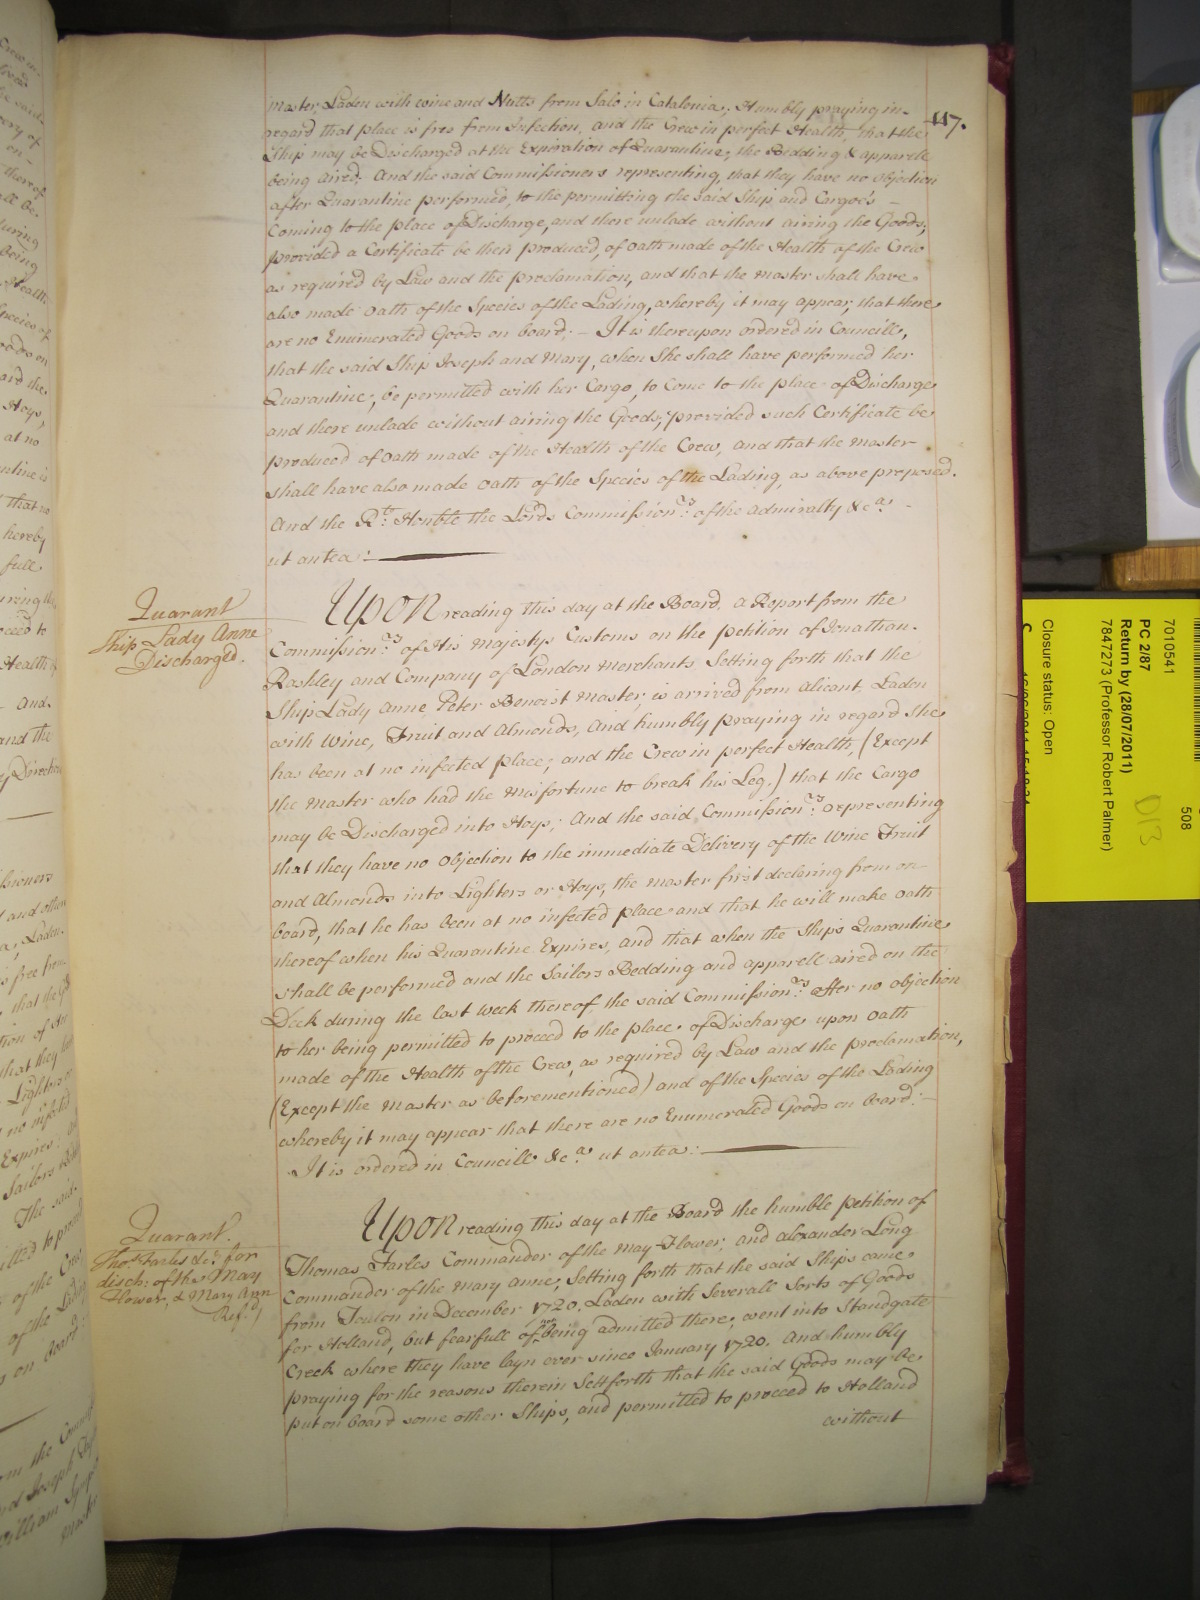 117.
Master, Laden with wine and Nutts from Salo in Catalonia; Humbly praying in-
regard that place is free from Infection, and the Crew in perfect Health, that the
Ship may be Discharged at the Expiration of Quarantine, the Bedding & apparell
being aired; And the said Commissioners representing, that they have no objection
after Quarantine performed, to the permitting the said Ship and Cargoe's -
Coming to the place of Discharge, and there unlade without airing the Goods;
provided a Certificate be then produced, of Oath made of the Health of the Crew
as required by Law and the proclamation, and that the Master shall have
also made Oath of the Species of the Lading, whereby it may appear, that there
are no Enumerated Goods on board; - It is thereupon ordered in Councill,
that the said Ship Joseph and Mary, when She shall have performed her
Quarantine, be permitted with her Cargo, to Come to the place of Discharge
and there unlade without airing the Goods; provided such Certificate be
produced of Oath made of the Health of the Crew, and that the Master
shall have also made Oath of the Species of the Lading, as above proposed.
And the Rt. Honble the Lords Commissionrs. of the Admiralty &ca. -
ut antea:
Quarant
Ship Lady Anne
Discharged.
Upon reading this day at the Board, a Report from the
Commissionrs. of His Majestys Customs on the petition of Jonathan
Rashley and Company of London Merchants Setting forth that the
Ship Lady Anne Peter Benoist Master, is arrived from Alicant, Laden
with Wine, Fruit and Almonds, And humbly praying in regard She
has been at no infected place; and the Crew in perfect Health, (Except
the Master who had the Misfortune to break his Leg.) that the Cargo
may be Discharged into Hoys; And the said Commissionrs. representing
that they have no Objection to the immediate Delivery of the Wine Fruit
and Almonds into Lighters or Hoys, the Master first declaring from on-
board, that he has been at no infected place and that he will make Oath
thereof when his Quarantine Expires, and that when the Ships Quarantine
shall be performed and the Sailors Bedding and apparell aired on the
Deck during the last week thereof, the said Commissionrs. offer no objection
to her being permitted to proceed to the place of Discharge upon Oath
made of the Health of the Crew, as required by Law and the proclamation,
(Except the Master as beforementioned) and of the Species of the Lading
whereby it may appear that there are no Enumerated Goods on board: -
It is ordered in Councill &ca. ut antea:
Quarant.
Thos. Farles &c: for
disch: of the May
Flower, & Mary Ann
Ref.d
Upon reading this day at the Board the humble Petition of
Thomas Farles Commander of the May-Flower, and Alexander Long
Commander of the Mary Anne, Setting forth that the said Ships came
from Toulon in December 1720. Laden with Severall Sorts of Goods
for Holland, but fearfull of not being admitted there, went into Standgate
Creek where they have layn ever since January 1720. And humbly
praying for the reasons therein Settforth that the said Goods may be
put on board some other Ships, and permitted to proceed to Holland
without
508
7010541
PC 2/87
Return by (28/07/2011)
7847273 (Professor Robert Palmer)
D13
Closure status: Open